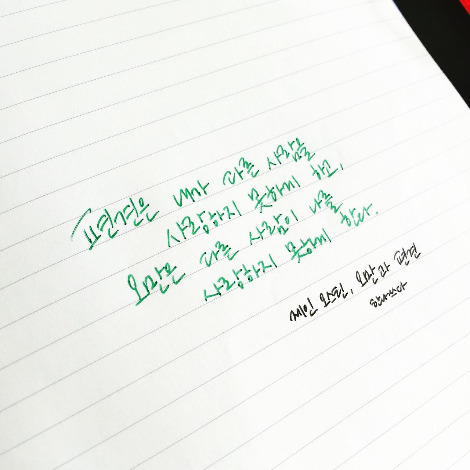 편견은 내가 다른 사람을
사랑하지 못하게 하고,
오만은 다른 사람이 나를
사랑하지 못하게 한다.
제인 오스틴, 오만과 편견